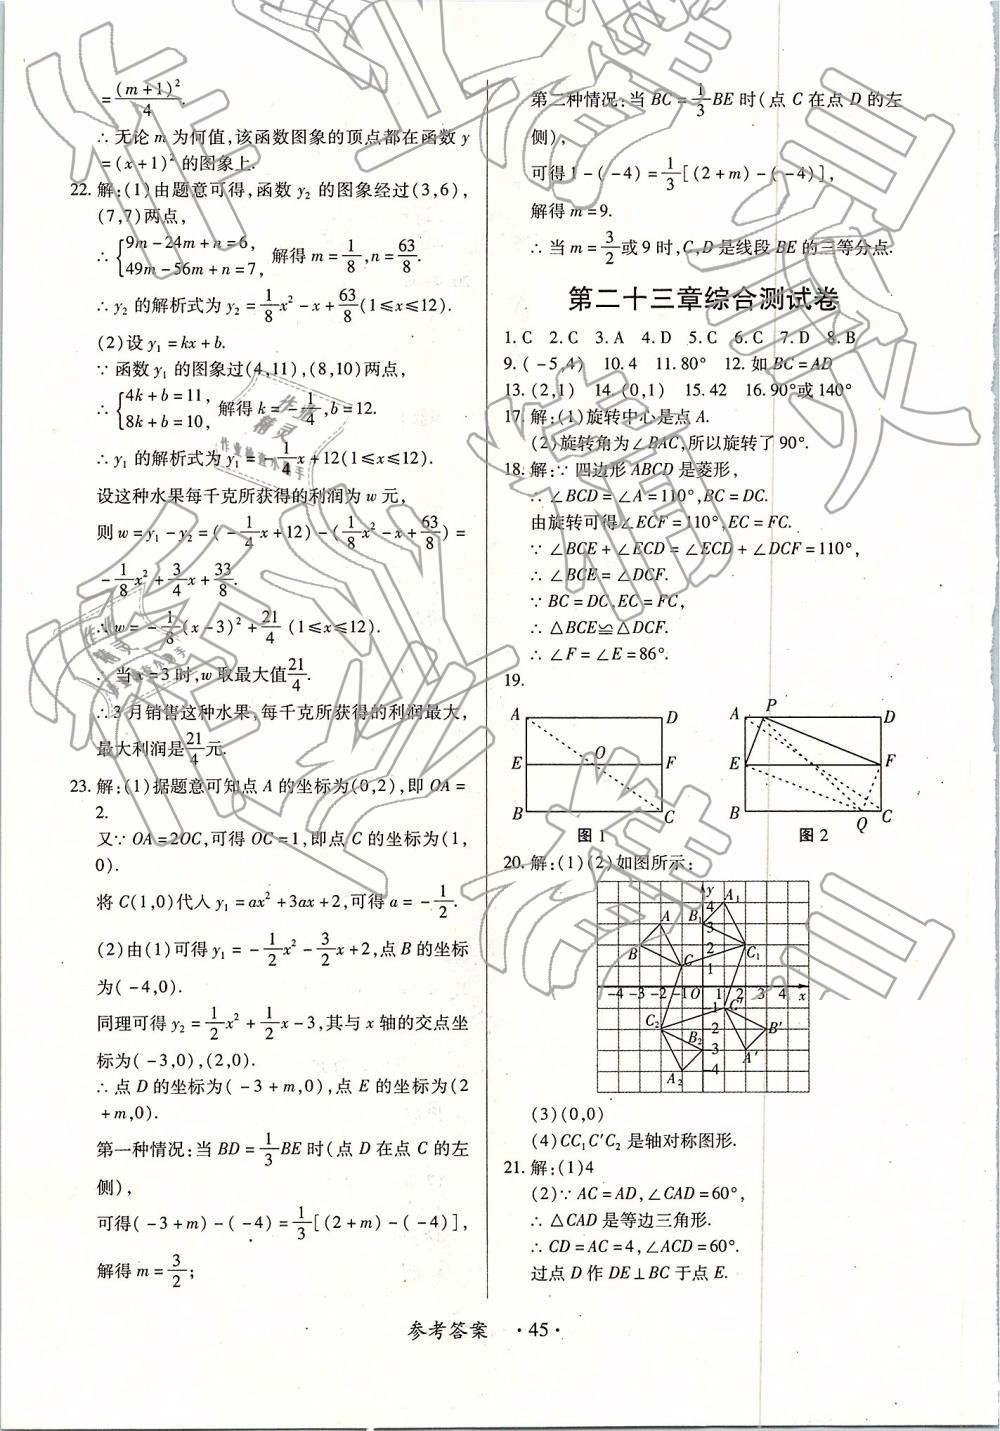 =(m+1)²/4.
∴无论 m 为何值,该函数图象的顶点都在函数 y
=(x+1)² 的图象上.
22. 解:(1)由题意可得,函数 y₂ 的图象经过(3,6),
(7,7)两点,
∴{9m-24m+n=6, 49m-56m+n=7, 解得 m=1/8,n=63/8.
∴y₂ 的解析式为 y₂=1/8x²-x+63/8(1≤x≤12).
(2)设 y₁=kx+b.
∵函数 y₁ 的图象过(4,11),(8,10)两点,
∴{4k+b=11, 8k+b=10, 解得 k=-1/4,b=12.
∴y₁ 的解析式为 y₁=-1/4x+12(1≤x≤12).
设这种水果每千克所获得的利润为 w 元,
则 w=y₁-y₂=(-1/4x+12)-(1/8x²-x+63/8)=
-1/8x²+3/4x+33/8.
∴w=-1/8(x-3)²+21/4 (1≤x≤12).
∴当 x=3 时,w 取最大值21/4.
∴3 月销售这种水果,每千克所获得的利润最大,
最大利润是21/4元.
23. 解:(1)据题意可知点 A 的坐标为(0,2),即 OA=
2.
又∵OA=2OC,可得 OC=1,即点 C 的坐标为(1,
0).
将 C(1,0)代人 y₁=ax²+3ax+2,可得 a=-1/2.
(2)由(1)可得 y₁=-1/2x²-3/2x+2,点 B 的坐标
为(-4,0).
同理可得 y₂=1/2x²+1/2x-3,其与 x 轴的交点坐
标为(-3,0),(2,0).
∴点 D 的坐标为(-3+m,0),点 E 的坐标为(2
+m,0).
第一种情况:当 BD=1/3BE 时(点 D 在点 C 的左
侧),
可得(-3+m)-(-4)=1/3[(2+m)-(-4)],
解得 m=3/2;
第二种情况:当 BC=1/3BE 时(点 C 在点 D 的左
侧),
可得 1-(-4)=1/3[(2+m)-(-4)],
解得 m=9.
∴当 m=3/2或 9 时,C,D 是线段 BE 的三等分点.
第二十三章综合测试卷
1. C 2. C 3. A 4. D 5. C 6. C 7. D 8. B
9. (-5,4) 10. 4 11. 80° 12. 如 BC=AD
13. (2,1) 14. (0,1) 15. 42 16. 90°或 140°
17. 解:(1)旋转中心是点 A.
(2)旋转角为∠BAC,所以旋转了 90°.
18. 解:∵四边形 ABCD 是菱形,
∴∠BCD=∠A=110°,BC=DC.
由旋转可得∠ECF=110°,EC=FC.
∵∠BCE+∠ECD=∠ECD+∠DCF=110°,
∴∠BCE=∠DCF.
∵BC=DC,EC=FC,
∴△BCE≌△DCF.
∴∠F=∠E=86°.
19.
A D
E O F
B C
图 1
A P D
E F
B Q C
图 2
20. 解:(1)(2)如图所示:
y
4 A₁
A B₁ 3
B 2 C₁
C 1
-4 -3 -2 -1 O 1 2 3 4 x
C′
C₂ 2 B′
B₂ -3 A′
A₂ -4
(3)(0,0)
(4)CC₁C′C₂ 是轴对称图形.
21. 解:(1)4
(2)∵AC=AD,∠CAD=60°,
∴△CAD 是等边三角形.
∴CD=AC=4,∠ACD=60°.
过点 D 作 DE⊥BC 于点 E.
参考答案 ·45·
作业精灵
作业精灵
作业检查小助手
作业精灵
作业检查小助手